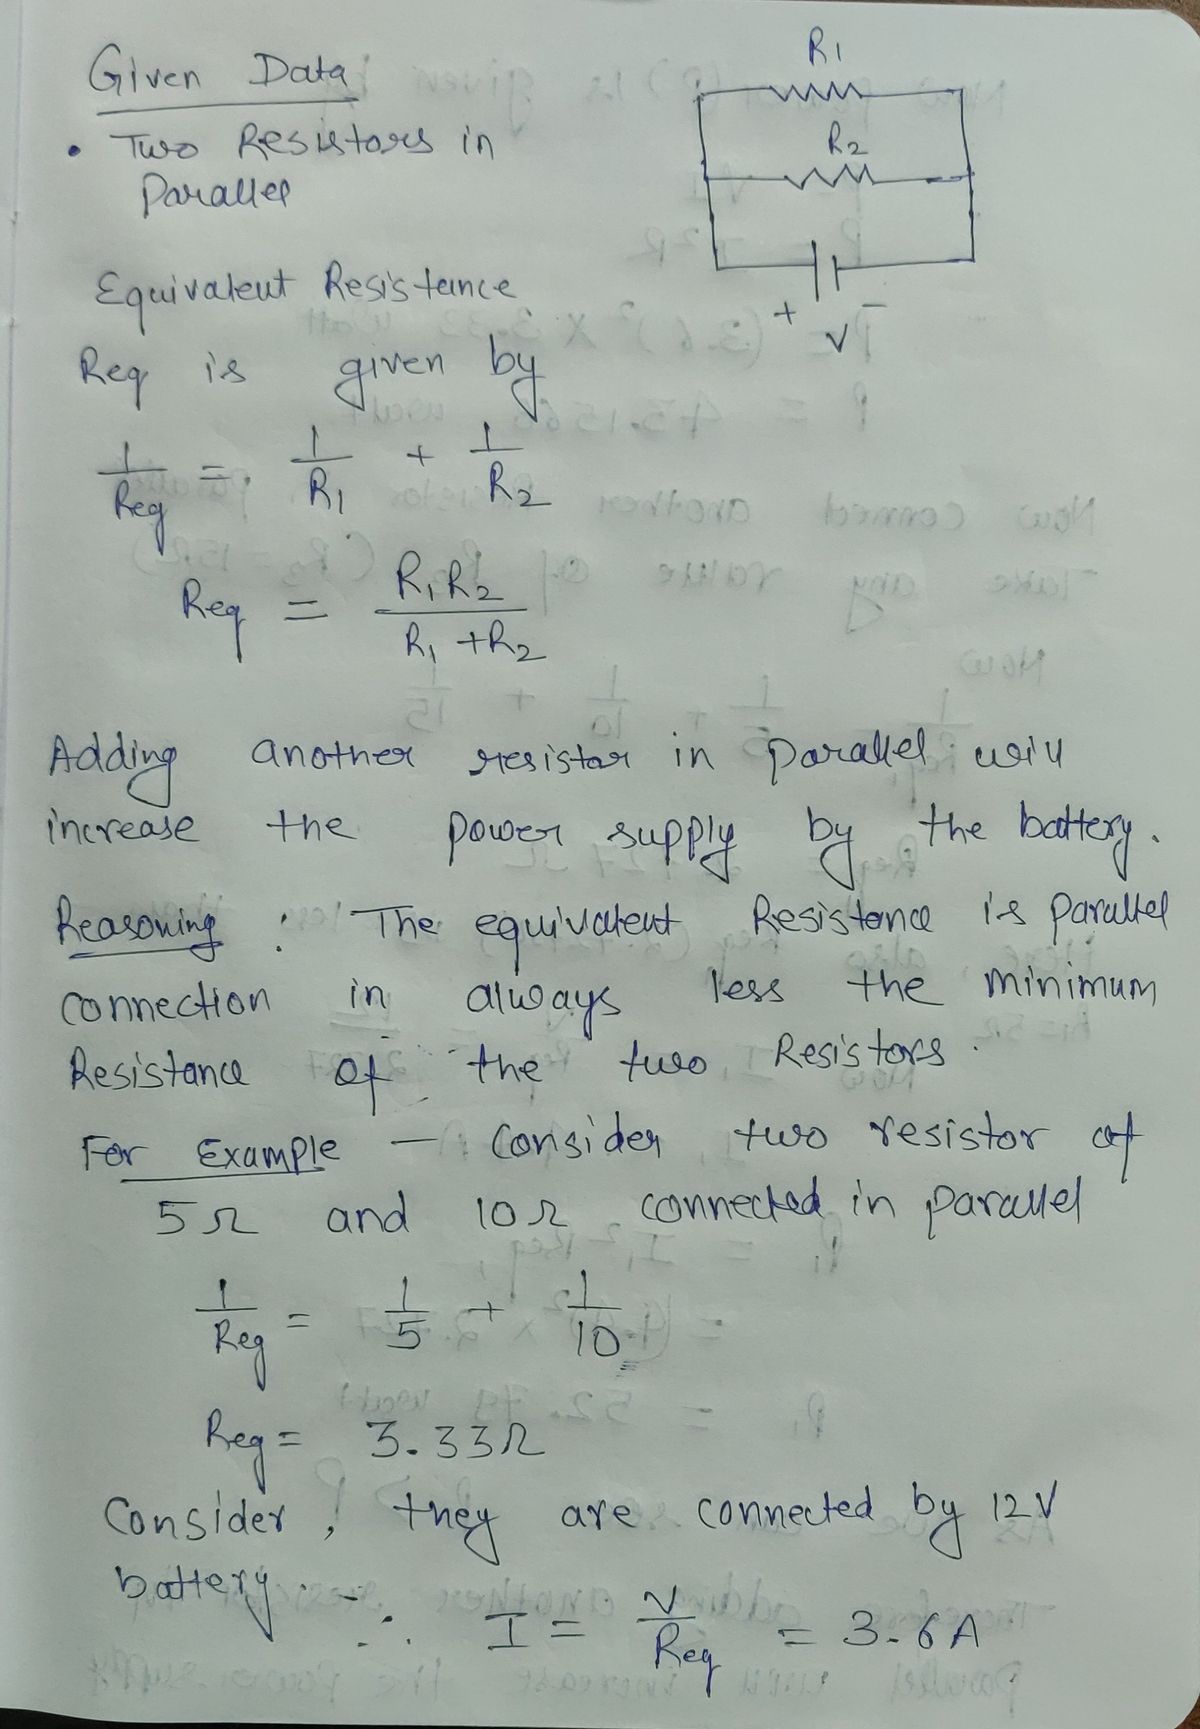 Given Data
• Two Resistors in
Parallel
R1
R2
+ V −
Equivalent Resistance
Req is given by
1/Req = 1/R1 + 1/R2
Req = R1R2/R1+R2
Adding another resistor in parallel will
increase the power supply by the battery.
Reasoning : The equivalent Resistance is parallel
connection in always less the minimum
Resistance of the two Resistors.
For Example — Consider two resistor of
5Ω and 10Ω connected in parallel
1/Req = 1/5 + 1/10
Req = 3.33Ω
Consider, they are connected by 12V
battery
∴ I = V/Req = 3.6A